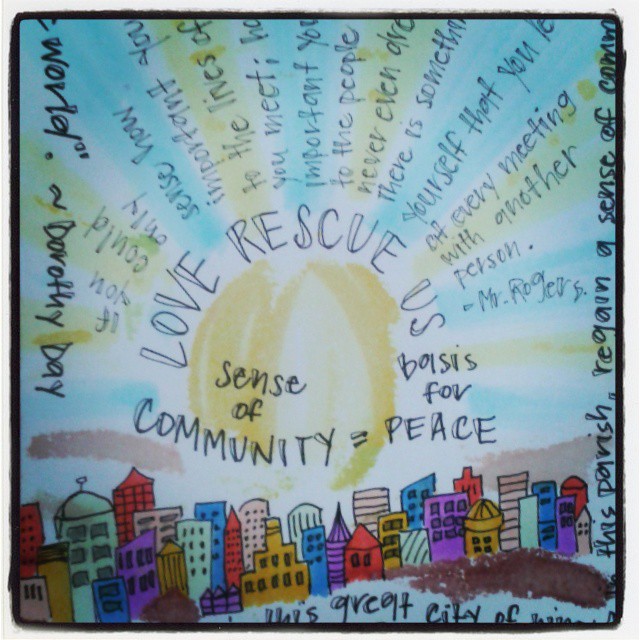 World." ~ Dorothy Day
If
you
could
only
sense how
important you
to the lives of
you meet; ho
important you
to the people
never even dre
There is somethin
Yourself that you le
at every meeting
with another
person.
- Mr. Rogers.
LOVE RESCUE US
sense
of
COMMUNITY = PEACE
basis
for
this parish, regain a sense of comm
this great city of